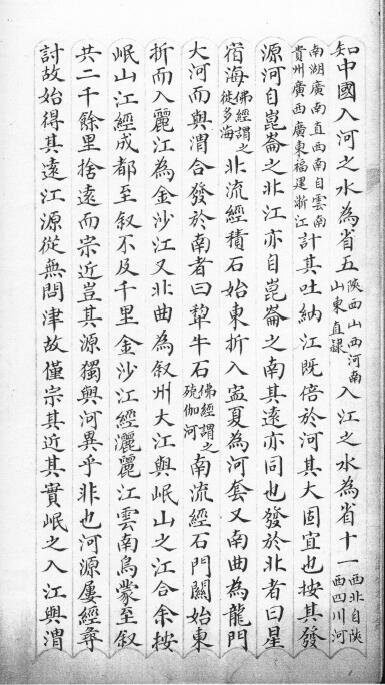 知中國入河之水為省五陝西山西河南山東直隸入江之水為省十一西北自陝西四川河
南湖廣南直西南自雲南貴州廣西廣東福建浙江計其吐納江既倍於河其大固宜也按其發
源河自崑崙之北江亦自崑崙之南其遠亦同也發於北者曰星
宿海佛經謂之徙多海北流經積石始東折入寧夏為河套又南曲為龍門
大河而與渭合發於南者曰犂牛石佛經謂之碗伽河南流經石門關始東
折而入麗江為金沙江又北曲為叙州大江與岷山之江合余按
岷山江經成都至叙不及千里金沙江經灑麗江雲南烏蒙至叙
共二千餘里捨遠而宗近豈其源獨與河異乎非也河源屢經尋
討故始得其遠江源從無問津故僅宗其近其實岷之入江與渭